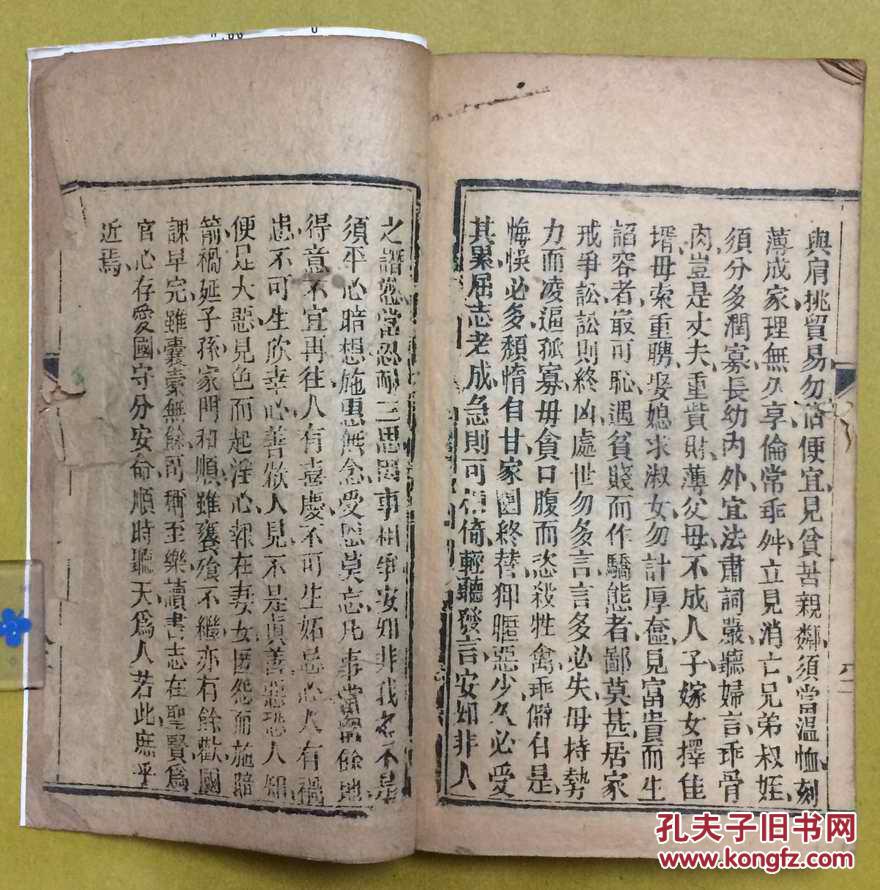 與肩挑貿易勿佔便宜見貧苦親鄰須當溫恤刻
薄成家理無久享倫常乖舛立見消亡兄弟叔姪
須分多潤寡長幼內外宜法肅詞嚴聽婦言乖骨
肉豈是丈夫重貲財薄父母不成人子嫁女擇佳
壻毋索重聘娶媳求淑女勿計厚奩見富貴而生
諂容者最可恥遇貧賤而作驕態者鄙莫甚居家
戒爭訟訟則終凶處世勿多言言多必失毋恃勢
力而凌逼孤寡毋貪口腹而恣殺牲禽乖僻自是
悔悞必多頹惰自甘家園終替狎暱惡少久必受
其累屈志老成急則可相倚輕聽發言安知非人
之譖愬當忍耐三思因事相爭安知非我之不是
須平心暗想施惠無念受恩莫忘凡事當留餘地
得意不宜再往人有喜慶不可生妬忌心人有禍
患不可生欣幸心善欲人見不是眞善惡恐人知
便是大惡見色而起淫心報在妻女匿怨而施暗
箭禍延子孫家門和順雖饔飧不繼亦有餘歡國
課早完雖囊橐無餘可稱至樂讀書志在聖賢爲
官心存愛國守分安命順時聽天爲人若此庶乎
近焉
孔夫子旧书网
www.kongfz.com